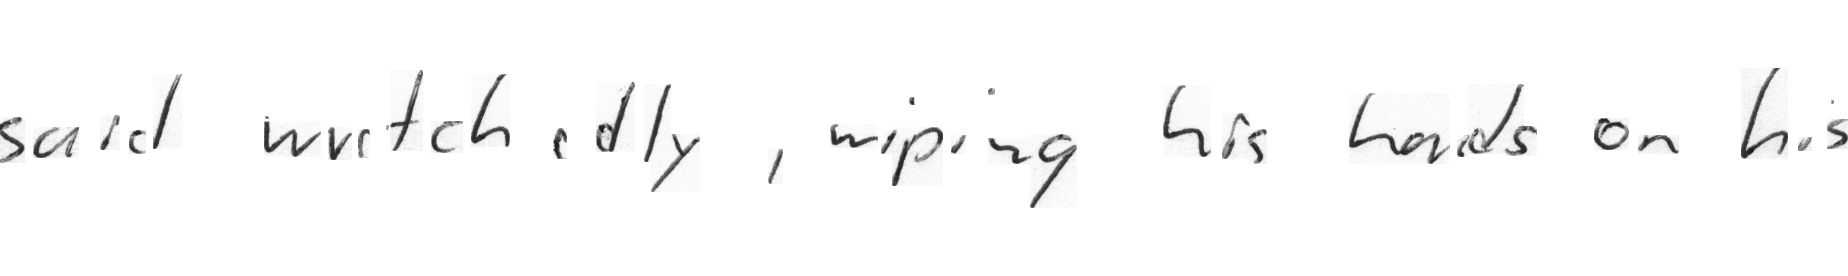 said wretchedly , wiping his hands on his